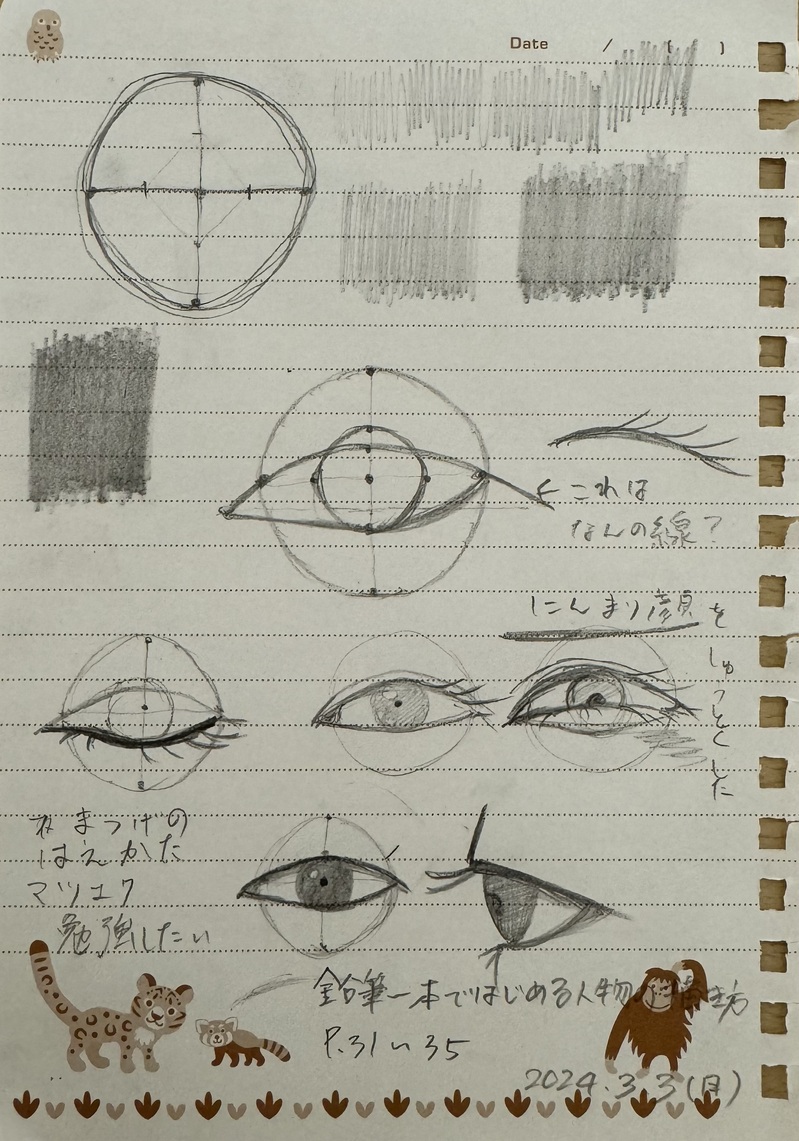 Date / ( )
← これは
なんの線?
にんまり顔を
しゅっとくした
まつげの
はえかた
マツエク
勉強したい
鉛筆一本ではじめる人物の描き方
P.31〜35
2024.3.3(日)